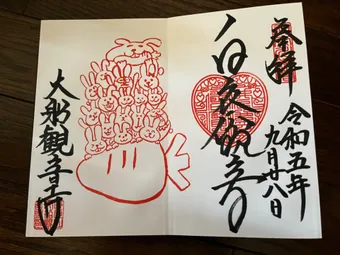 奉拝
令和五年
九月廿八日
白衣観音
大船観音寺